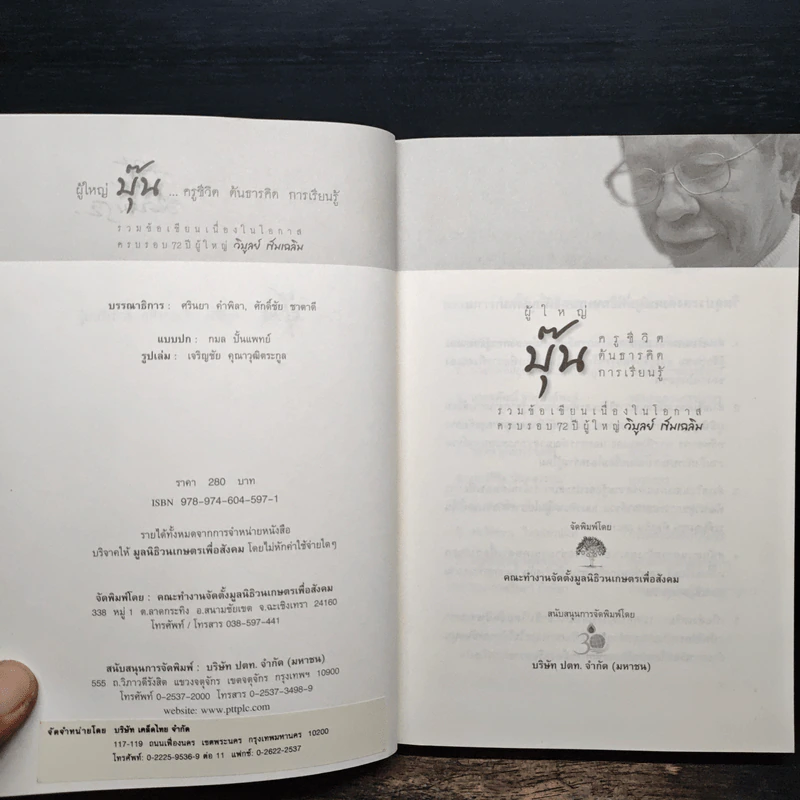 ผู้ใหญ่ ปุ๊น ... ครูชีวิต ต้นธารคิด การเรียนรู้
รวมข้อเขียนเนื่องในโอกาส
ครบรอบ 72 ปี ผู้ใหญ่ วิบูลย์ เข็มเฉลิม
บรรณาธิการ : ศรินยา คำพิลา, ศักดิ์ชัย ชาตาดี
แบบปก : กมล ปั้นแพทย์
รูปเล่ม : เจริญชัย คุณาวุฒิตระกูล
ราคา 280 บาท
ISBN 978-974-604-597-1
รายได้ทั้งหมดจากการจำหน่ายหนังสือ
บริจาคให้ มูลนิธิวนเกษตรเพื่อสังคม โดยไม่หักค่าใช้จ่ายใดๆ
จัดพิมพ์โดย : คณะทำงานจัดตั้งมูลนิธิวนเกษตรเพื่อสังคม
338 หมู่ 1 ต.ลาดกระทิง อ.สนามชัยเขต จ.ฉะเชิงเทรา 24160
โทรศัพท์ / โทรสาร 038-597-441
สนับสนุนการจัดพิมพ์ : บริษัท ปตท. จำกัด (มหาชน)
555 ถ.วิภาวดีรังสิต แขวงจตุจักร เขตจตุจักร กรุงเทพฯ 10900
โทรศัพท์ 0-2537-2000 โทรสาร 0-2537-3498-9
website: www.pttplc.com
จัดจำหน่ายโดย บริษัท เคล็ดไทย จำกัด
117-119 ถนนเฟื่องนคร เขตพระนคร กรุงเทพมหานคร 10200
โทรศัพท์: 0-2225-9536-9 ต่อ 11 แฟกซ์: 0-2622-2537
ผู้ใหญ่
ปุ๊น
ครูชีวิต
ต้นธารคิด
การเรียนรู้
รวมข้อเขียนเนื่องในโอกาส
ครบรอบ 72 ปี ผู้ใหญ่ วิบูลย์ เข็มเฉลิม
จัดพิมพ์โดย
คณะทำงานจัดตั้งมูลนิธิวนเกษตรเพื่อสังคม
สนับสนุนการจัดพิมพ์โดย
30
บริษัท ปตท. จำกัด (มหาชน)